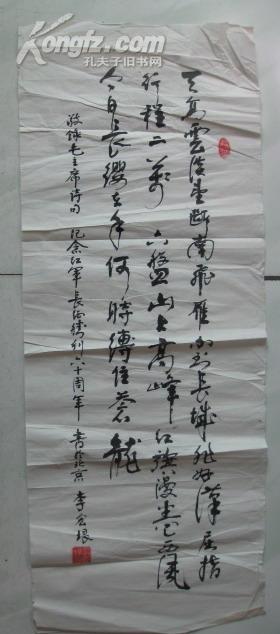 Kongfz.com
孔夫子旧书网
天高雲淡望断南飛雁不到長城非好漢屈指
行程二萬 六盘山上高峰 红旗漫卷西風
今日長纓在手何時缚住蒼龍
敬錄毛主席诗句 纪念红軍長征勝利六十周年 書於京 李